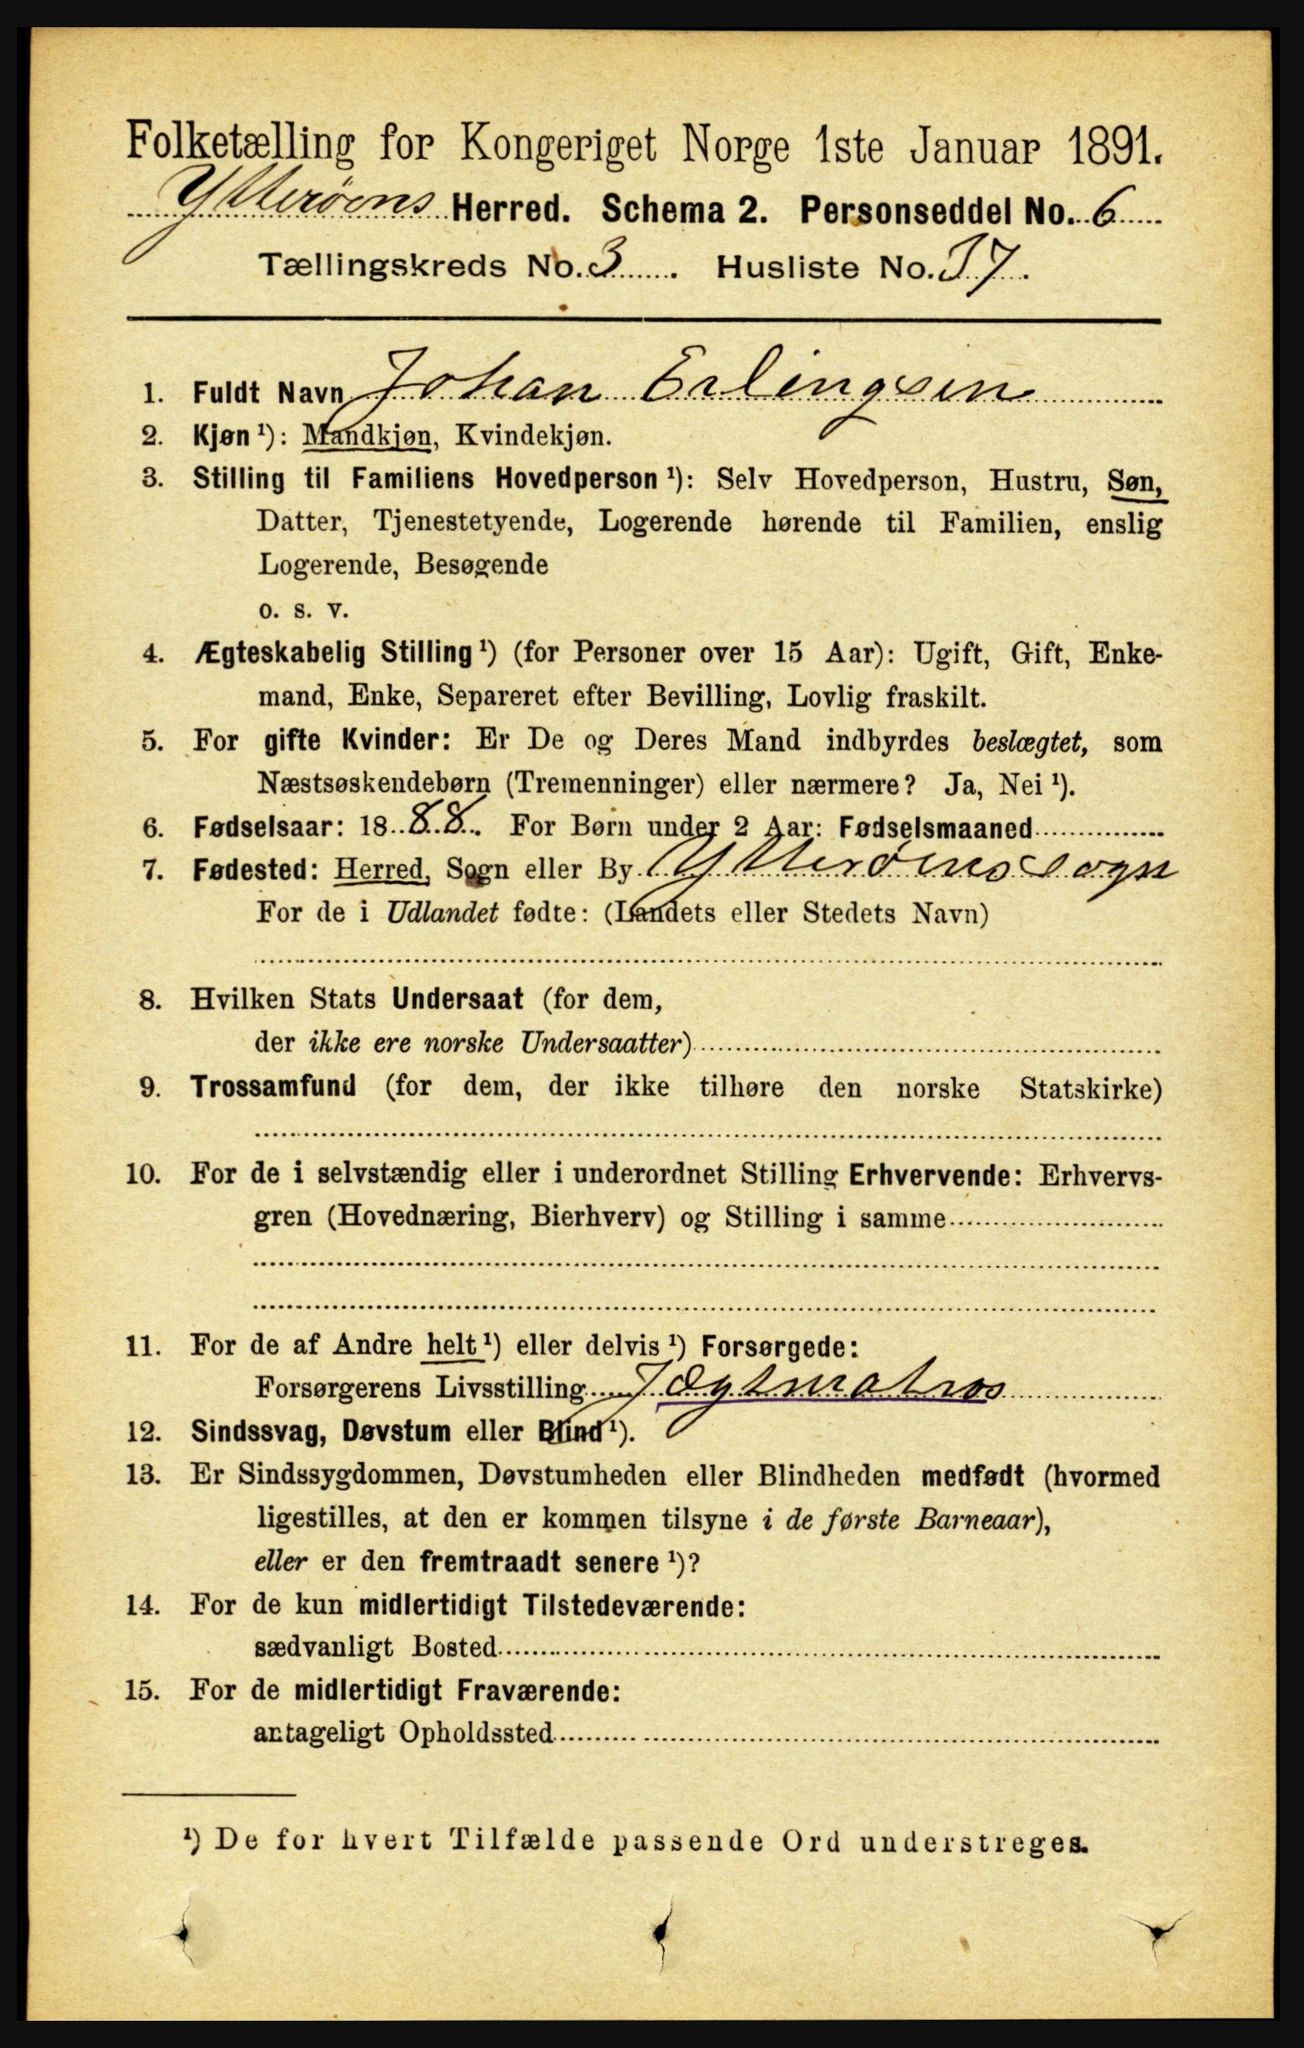 Folketælling for Kongeriget Norge 1ste Januar 1891.
Ytterøens Herred. Schema 2. Personseddel No. 6
Tællingskreds No. 3. Husliste No. 37.
1. Fuldt Navn Johan Erlingsen
2. Kjøn ¹): Mandkjøn, Kvindekjøn.
3. Stilling til Familiens Hovedperson ¹): Selv Hovedperson, Hustru, Søn,
Datter, Tjenestetyende, Logerende hørende til Familien, enslig
Logerende, Besøgende
o. s. v.
4. Ægteskabelig Stilling ¹) (for Personer over 15 Aar): Ugift, Gift, Enke-
mand, Enke, Separeret efter Bevilling, Lovlig fraskilt.
5. For gifte Kvinder: Er De og Deres Mand indbyrdes beslægtet, som
Næstsøskendebørn (Tremenninger) eller nærmere? Ja, Nei ¹).
6. Fødselsaar: 1888. For Børn under 2 Aar: Fødselsmaaned
7. Fødested: Herred, Sogn eller By Ytterøens sogn
For de i Udlandet fødte: (Landets eller Stedets Navn)
8. Hvilken Stats Undersaat (for dem,
der ikke ere norske Undersaatter)
9. Trossamfund (for dem, der ikke tilhøre den norske Statskirke)
10. For de i selvstændig eller i underordnet Stilling Erhvervende: Erhvervs-
gren (Hovednæring, Bierhverv) og Stilling i samme
11. For de af Andre helt ¹) eller delvis ¹) Forsørgede:
Forsørgerens Livsstilling Jægtmatros
12. Sindssvag, Døvstum eller Blind ¹).
13. Er Sindssygdommen, Døvstumheden eller Blindheden medfødt (hvormed
ligestilles, at den er kommen tilsyne i de første Barneaar),
eller er den fremtraadt senere ¹)?
14. For de kun midlertidigt Tilstedeværende:
sædvanligt Bosted
15. For de midlertidigt Fraværende:
antageligt Opholdssted
¹) De for hvert Tilfælde passende Ord understreges.